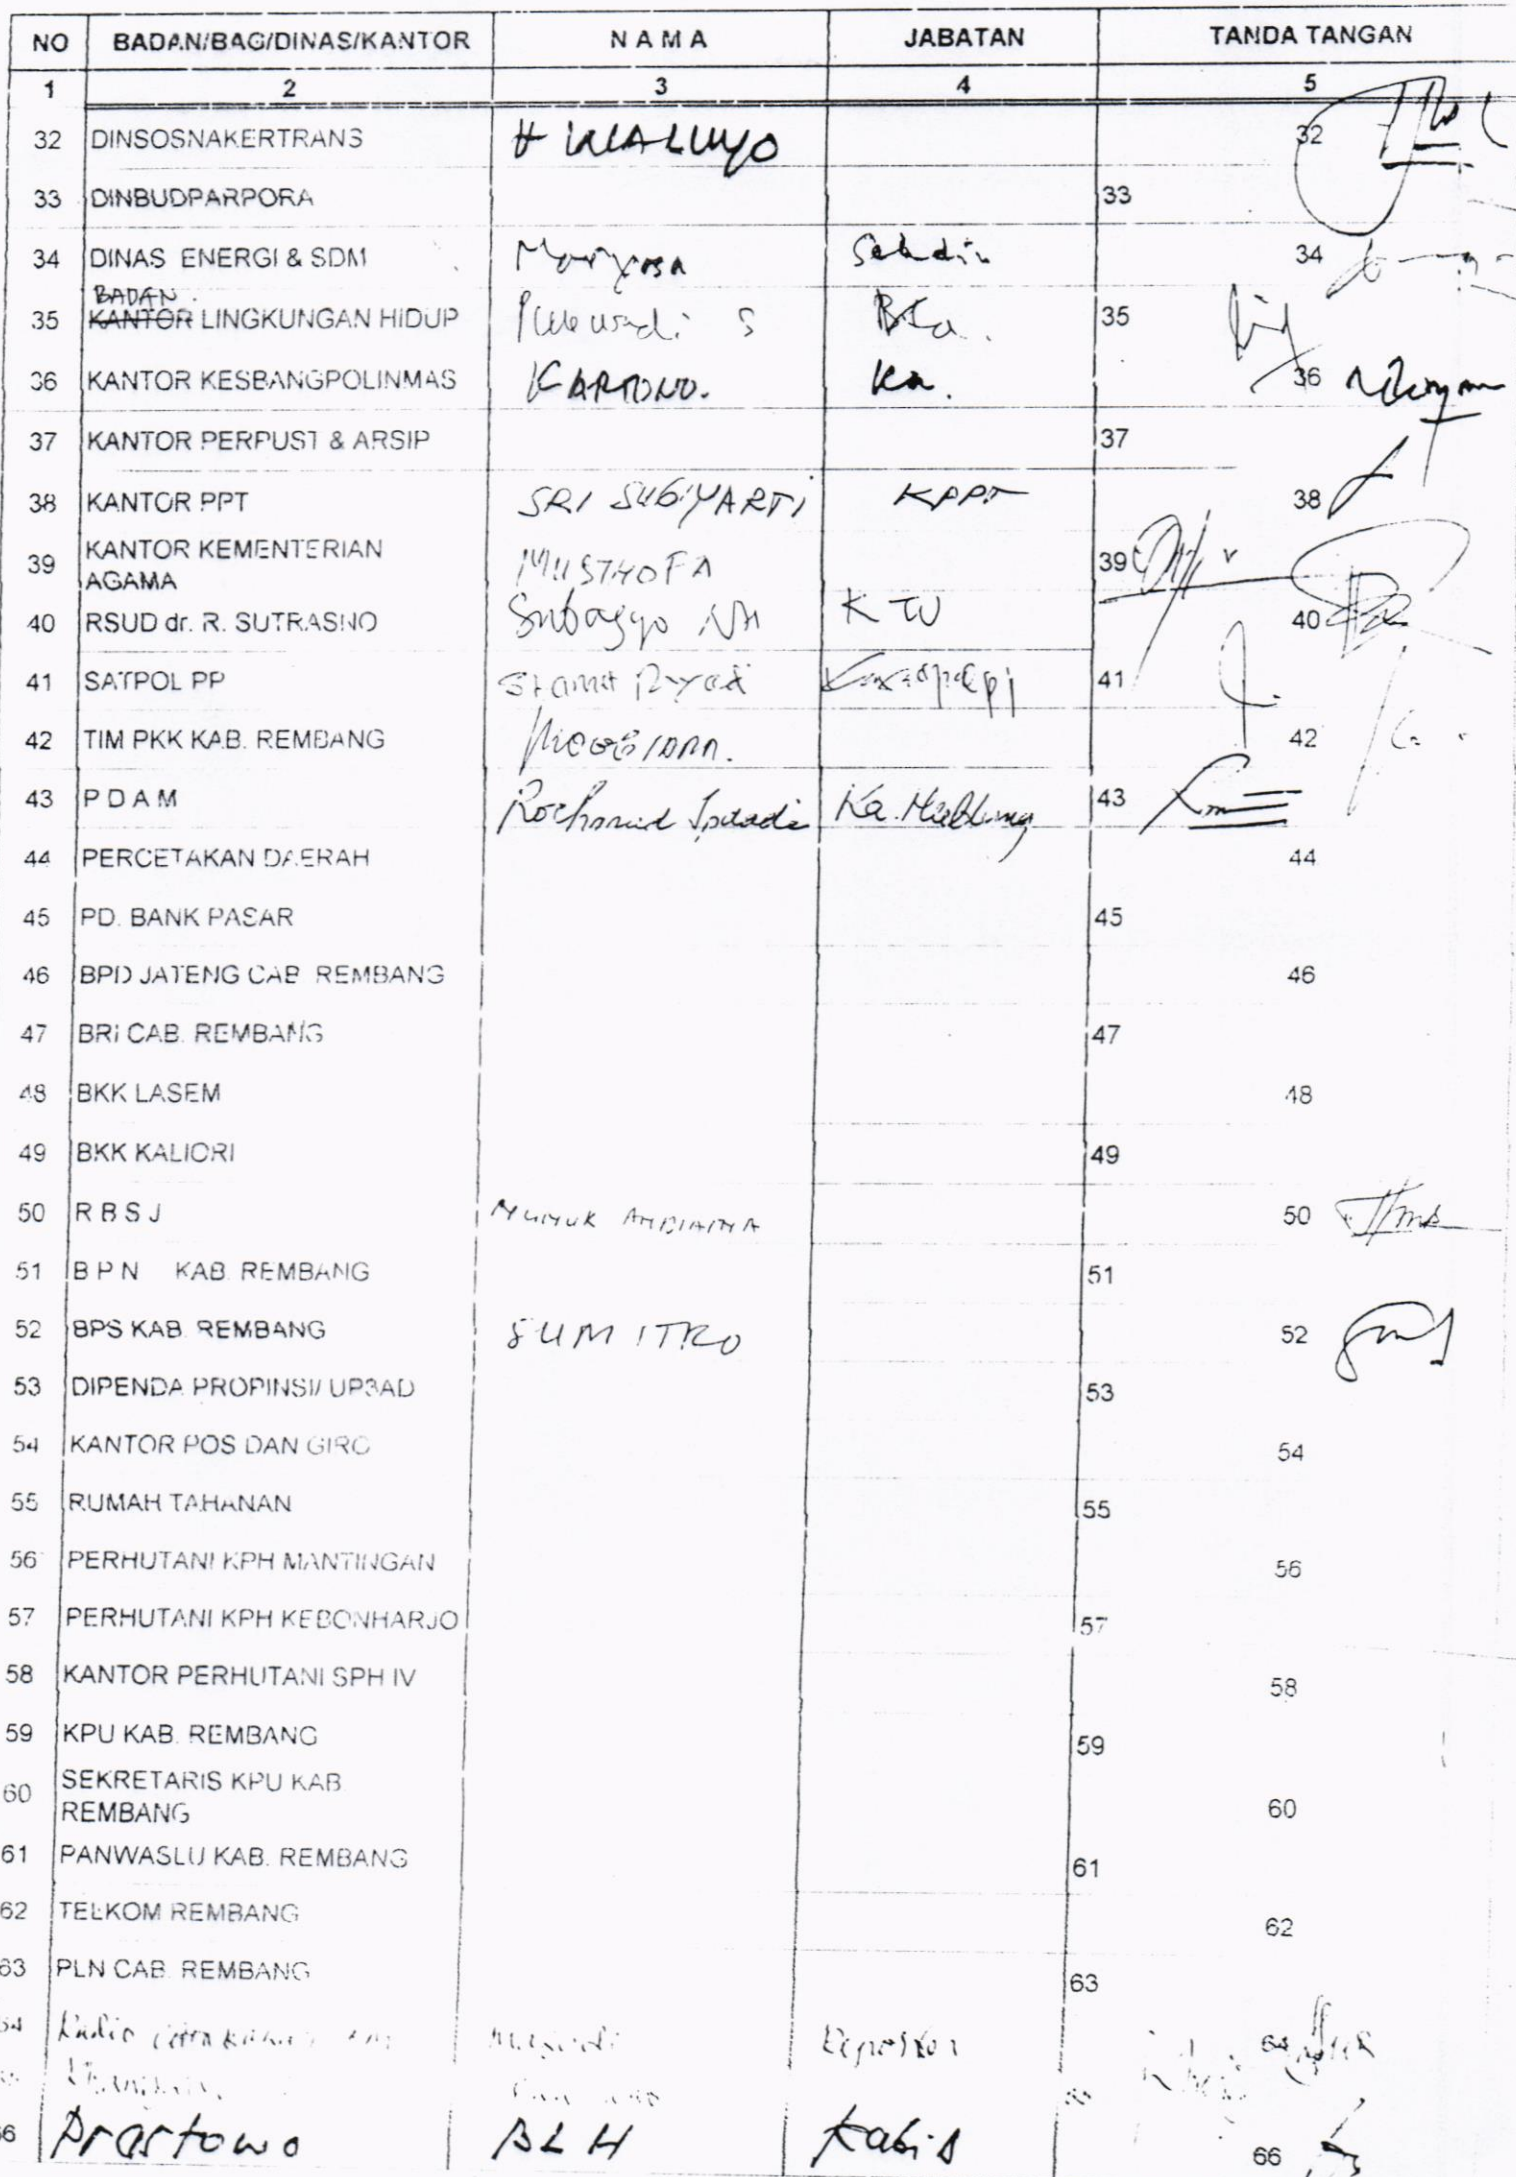 NO BADAN/BAG/DINAS/KANTOR N A M A JABATAN TANDA TANGAN
1 2 3 4 5
32 DINSOSNAKERTRANS H WALUYO 32
33 DINBUDPARPORA 33
34 DINAS ENERGI & SDM 34
BADAN
35 KANTOR LINGKUNGAN HIDUP S 35
36 KANTOR KESBANGPOLINMAS KARTONO. Ka. 36
37 KANTOR PERPUST & ARSIP 37
38 KANTOR PPT SRI SUGIYARTI KPPT 38
39 KANTOR KEMENTERIAN AGAMA MUSTHOFA 39
40 RSUD dr. R. SUTRASNO Subagyo KTU 40
41 SATPOL PP 41
42 TIM PKK KAB. REMBANG 42
43 P D A M Ka. 43
44 PERCETAKAN DAERAH 44
45 PD. BANK PASAR 45
46 BPD JATENG CAB REMBANG 46
47 BRI CAB. REMBANG 47
48 BKK LASEM 48
49 BKK KALIORI 49
50 R B S J 50
51 B P N KAB. REMBANG 51
52 BPS KAB. REMBANG SUMITRO 52
53 DIPENDA PROPINSI/ UP3AD 53
54 KANTOR POS DAN GIRO 54
55 RUMAH TAHANAN 55
56 PERHUTANI KPH MANTINGAN 56
57 PERHUTANI KPH KEBONHARJO 57
58 KANTOR PERHUTANI SPH IV 58
59 KPU KAB. REMBANG 59
60 SEKRETARIS KPU KAB REMBANG 60
61 PANWASLU KAB. REMBANG 61
62 TELKOM REMBANG 62
63 PLN CAB. REMBANG 63
64 Radio 64
66 Prastowo BLH Kabid 66